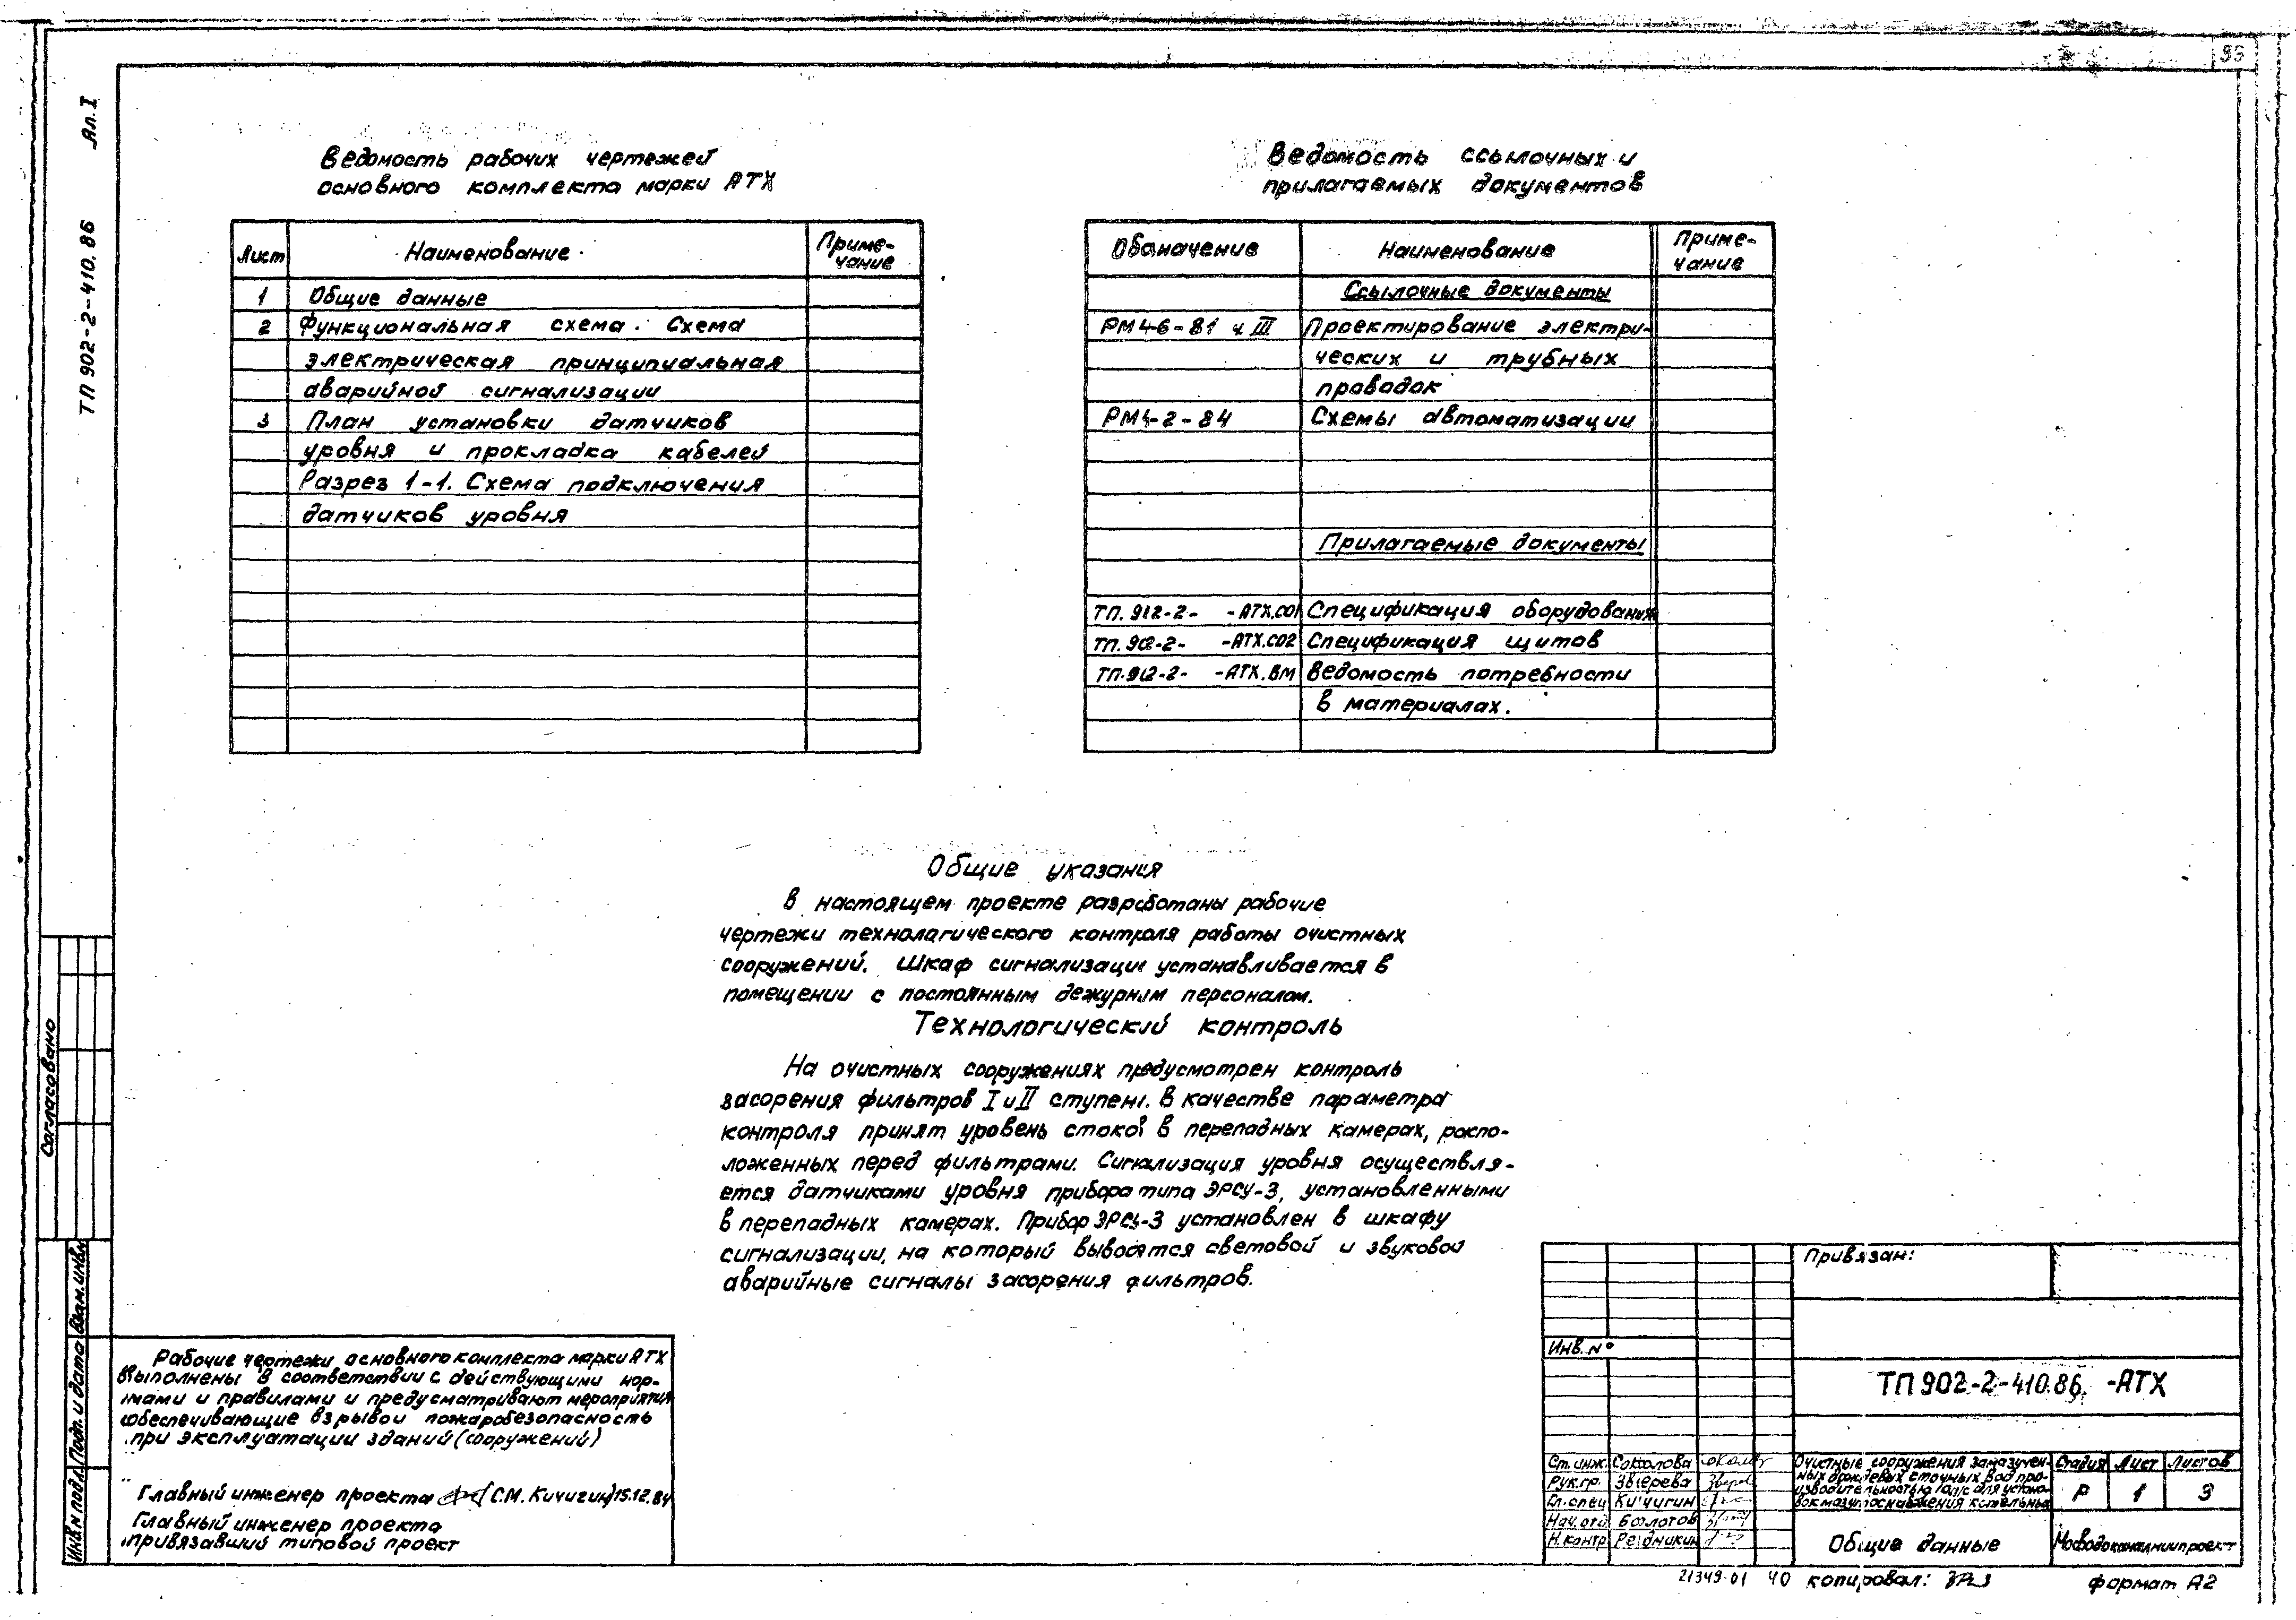 Ал. I
ТП 902-2-410.86
Ведомость рабочих чертежей
основного комплекта марки АТХ
Лист Наименование Приме-
чание
1 Общие данные
2 Функциональная схема. Схема
электрическая принципиальная
аварийной сигнализации
3 План установки датчиков
уровня и прокладка кабелей
Разрез 1-1. Схема подключения
датчиков уровня
Ведомость ссылочных и
прилагаемых документов
Обозначение Наименование Приме-
чание
Ссылочные документы
РМ4-6-81 ч. III Проектирование электри-
ческих и трубных
проводок
РМ4-2-84 Схемы автоматизации
Прилагаемые документы
ТП. 902-2- -АТХ.СО1 Спецификация оборудования
ТП. 902-2- -АТХ.СО2 Спецификация щитов
ТП. 902-2- -АТХ.ВМ Ведомость потребности
в материалах.
Общие указания
В настоящем проекте разработаны рабочие
чертежи технологического контроля работы очистных
сооружений. Шкаф сигнализации устанавливается в
помещении с постоянным дежурным персоналом.
Технологический контроль
На очистных сооружениях предусмотрен контроль
засорения фильтров I и II ступени. В качестве параметра
контроля принят уровень стоков в перепадных камерах, распо-
ложенных перед фильтрами. Сигнализация уровня осуществля-
ется датчиками уровня прибора типа ЭРСУ-3, установленными
в перепадных камерах. Прибор ЭРСУ-3 установлен в шкафу
сигнализации, на который выводятся световой и звуковой
аварийные сигналы засорения фильтров.
Согласовано
Инв.N подл. Подп. и дата Взам.инв.N
Рабочие чертежи основного комплекта марки АТХ
выполнены в соответствии с действующими нор-
мами и правилами и предусматривают мероприятия
обеспечивающие взрыво и пожаробезопасность
при эксплуатации зданий (сооружений)
Главный инженер проекта (С.М. Кичигин) 15.12.84
Главный инженер проекта
привязавший типовой проект
Привязан:
Инв. №
ТП 902-2-410.86. -АТХ
Ст.инж. Соколова
Рук.гр. Зверева
Гл.спец Кичигин
Нач.отд Болотов
Н.контр. Редникин
Очистные сооружения замазучен-
ных дождевых сточных вод про-
изводительностью 10л/с для устано-
вок мазутоснабжения котельных
Стадия Лист Листов
Р 1 3
Общие данные
Мосводоканалниипроект
21349-01 40 копировал:
формат А2